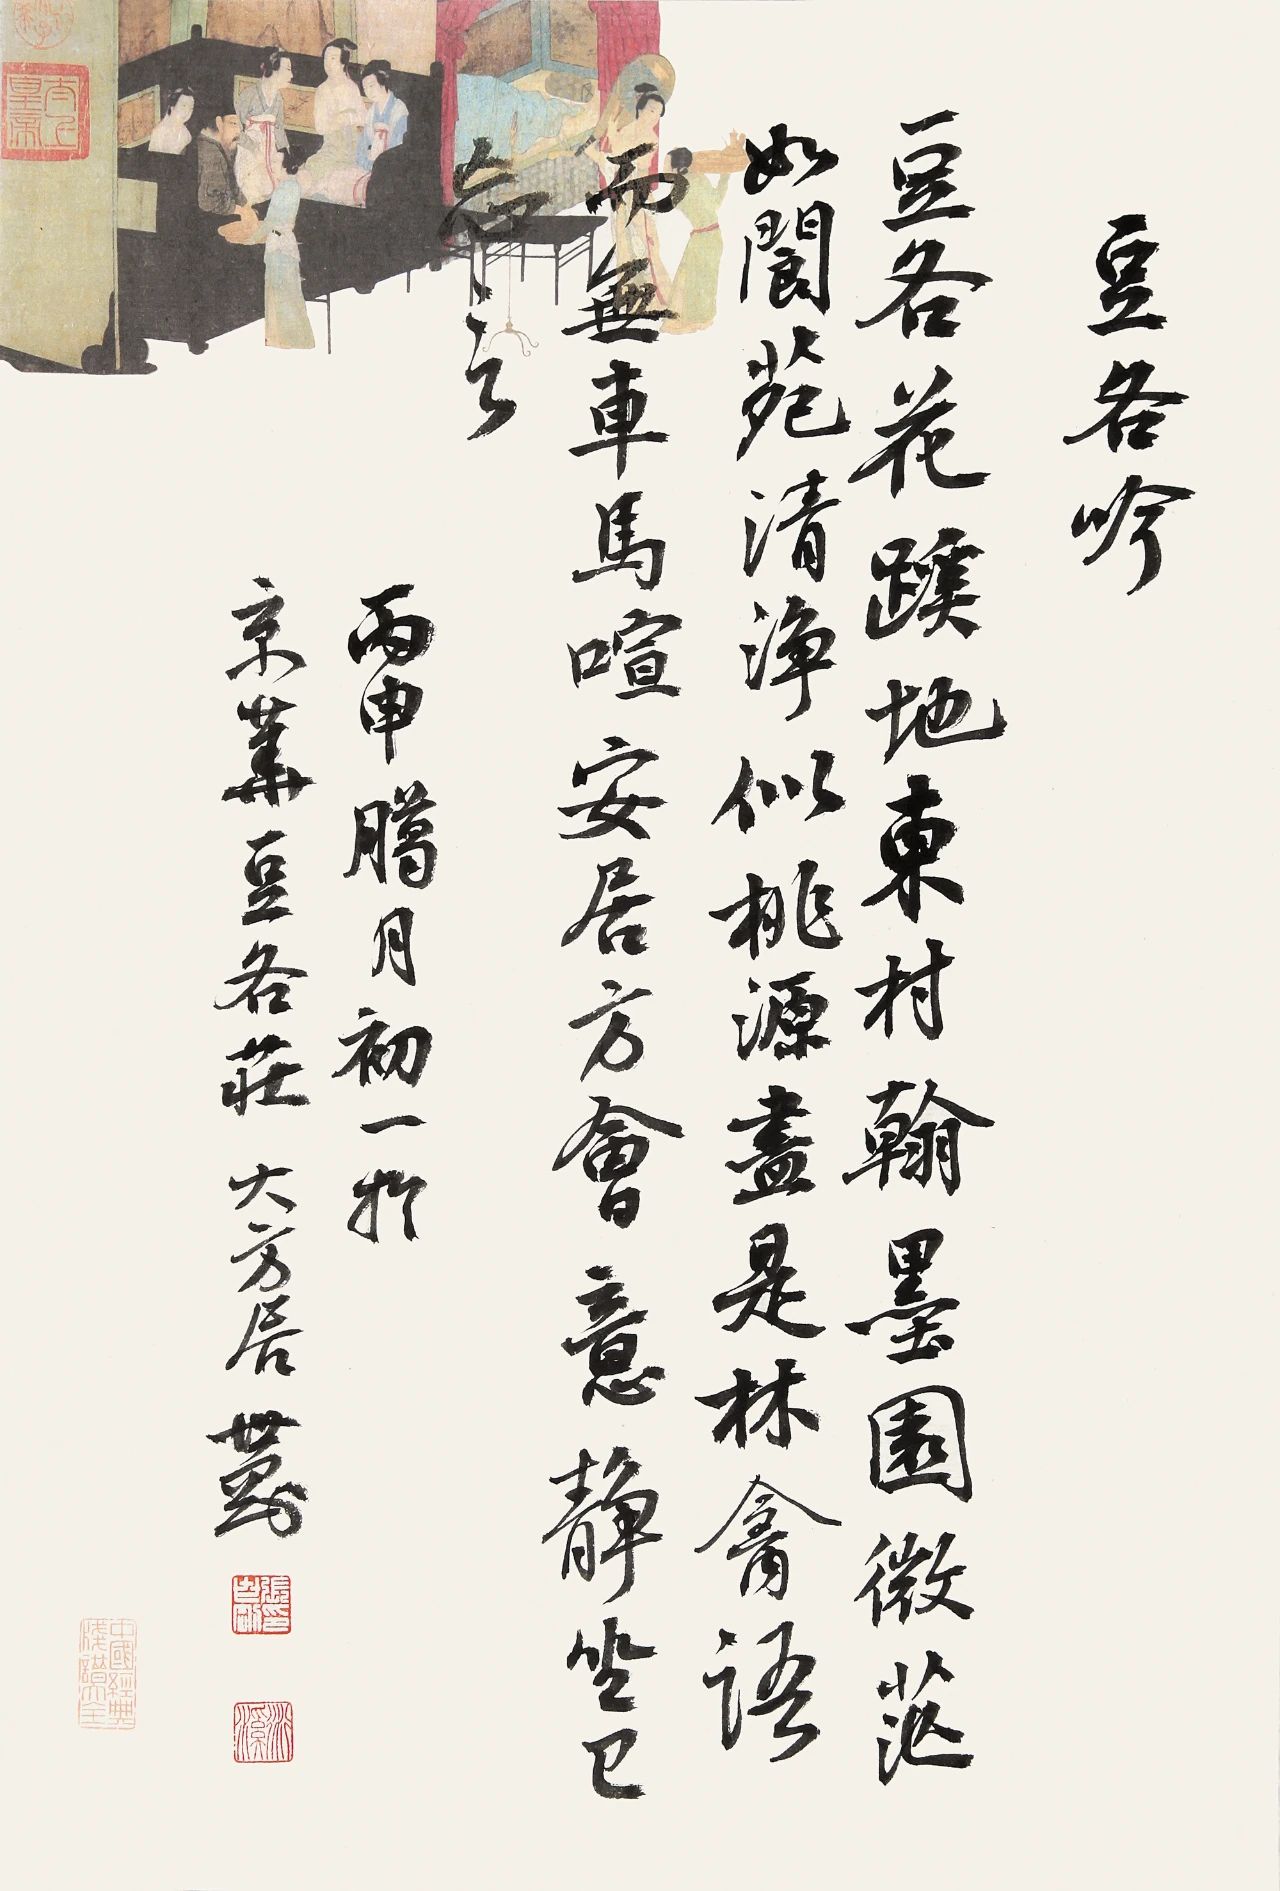 豆各吟
豆各花蹊地東村翰墨園微茫
如閬苑清淨似桃源盡是林禽語
而無車馬喧安居方會意靜坐已
忘言
丙申臈月初一於
京華豆各莊大方居
中國經典